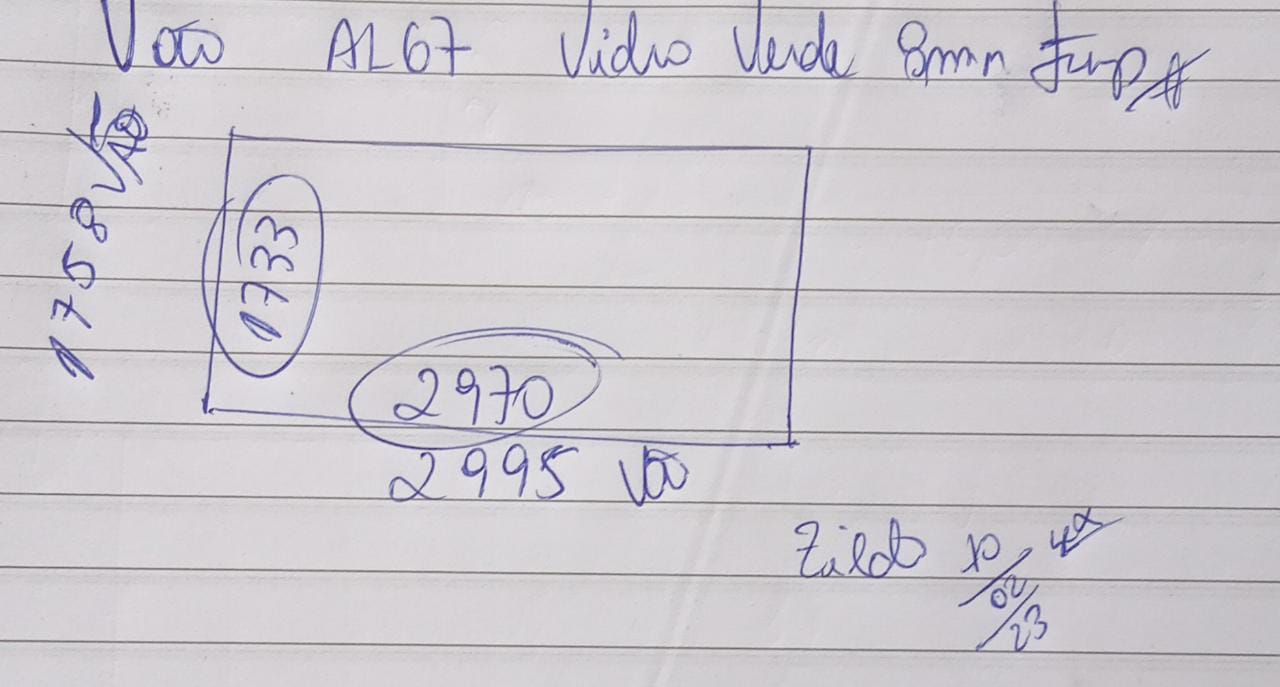 Vão AL67 Vidro Verde 8mm Temp
1758 Vão
1733
2970
2995 Vão
Zildo 10
02
23